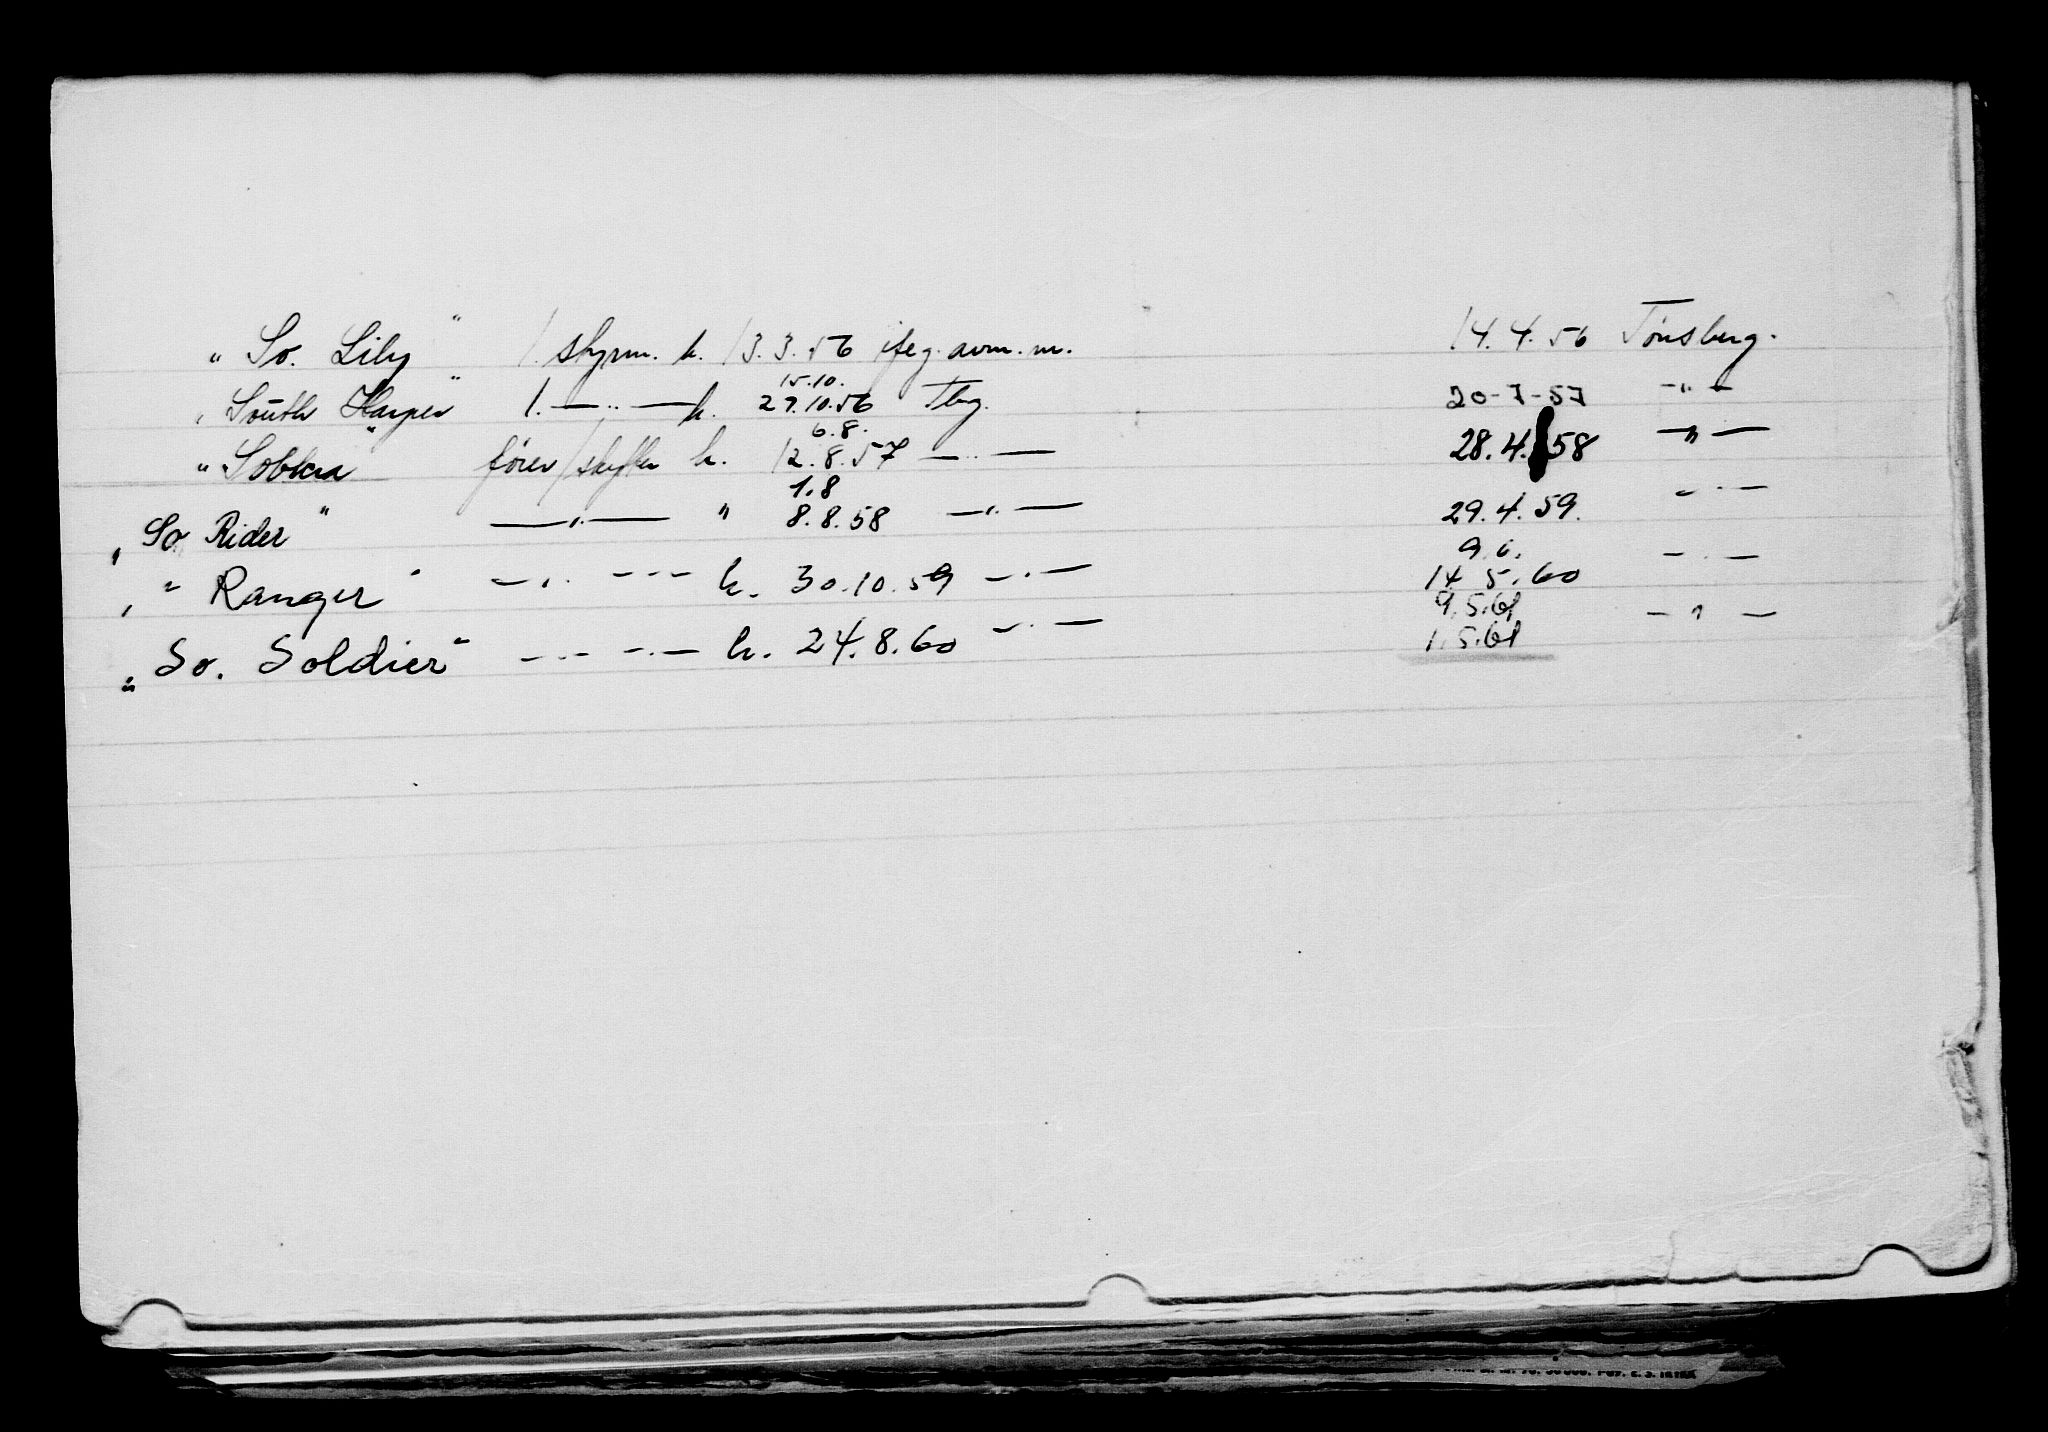 " So. Lily " 1. styrm. h. 13.3.56 ifeg. avm. m. 14.4.56 Tønsberg.
15.10.
" South Harper " 1. —"— h. 27.10.56 Tbg. 20-7-57 —"—
6.8.
" Sobkra " fører/skytter h. 12.8.57 —"— 28.4.58 —"—
1.8
" So Rider " —"— " 8.8.58 —"— 29.4.59. —"—
9.6.
" " Ranger " —"— —"— h. 30.10.59 —"— 14.5.60 —"—
9.5.61 —"—
" So. Soldier " —"— —"— h. 24.8.60 —"— 1.5.61